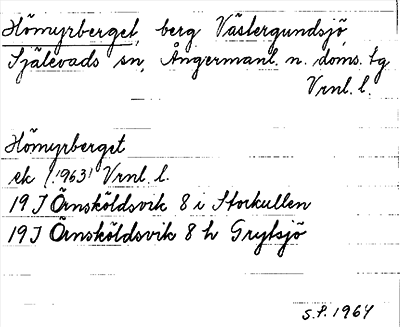 Hömyrberget, berg Västergundsjö,
Själevads sn, Ångermanl. n. doms. tg
Vrnl. l.
Hömyrberget
ek (1963) Vrnl. l.
19 J Örnsköldsvik 8 i Storkullen
19 J Örnsköldsvik 8 h Grytsjö
S.P. 1964